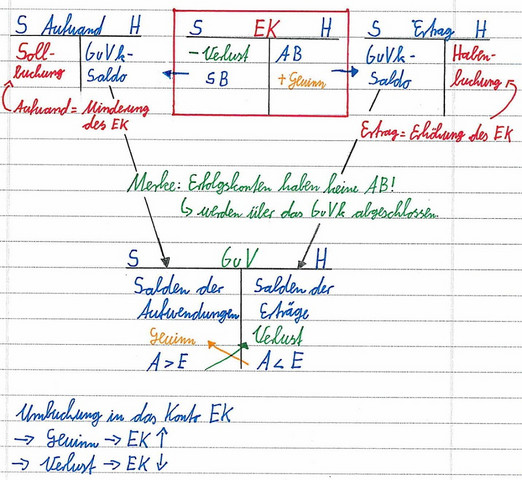 S Aufwand H
Soll-
buchung
GuVk-
Saldo
Aufwand = Minderung
des EK
S EK H
-Verlust
SB
AB
+ Gewinn
S Ertrag H
GuVk-
Saldo
Haben-
buchung
Ertrag = Erhöhung des EK
Merke: Erfolgskonten haben keine AB!
↳ werden über das GuVk abgeschlossen.
S GuV H
Salden der
Aufwendungen
Gewinn
A > E
Salden der
Erträge
Verlust
A < E
Umbuchung in das Konto EK
→ Gewinn → EK ↑
→ Verlust → EK ↓